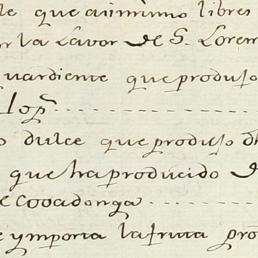 de que asimismo libres
la Lavor de S. Loren
uardiente que produjo
o dulce que produjo dh
que ha producido d
e Covadonga
e ymporta la fruta pro